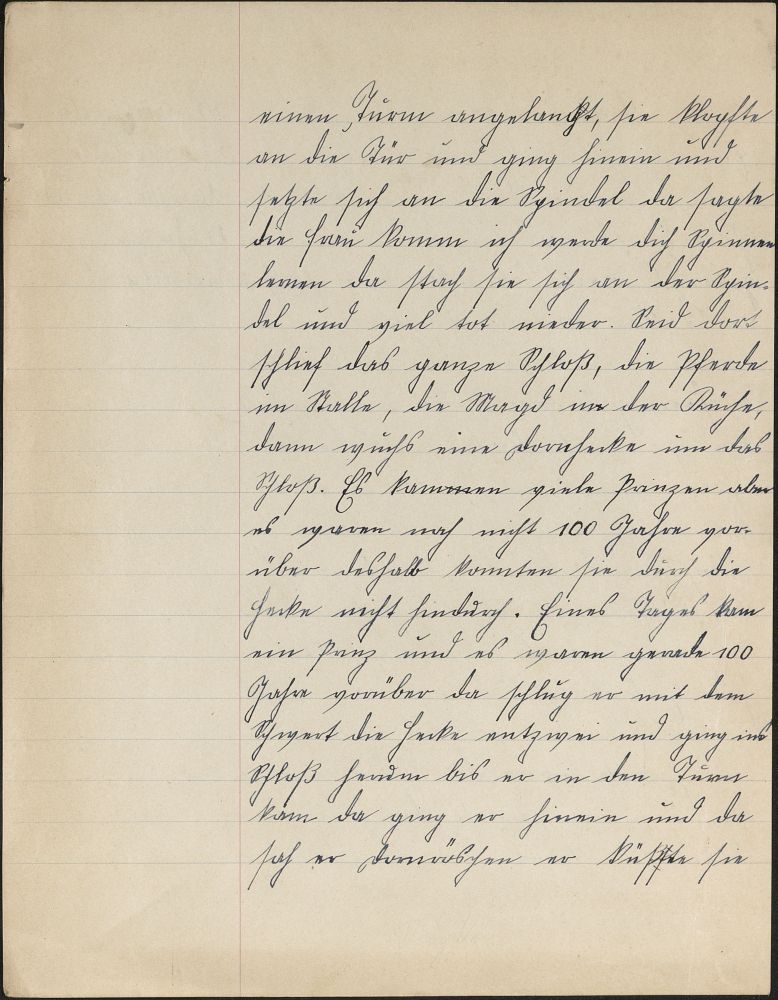 einen Turm angelangt, sie klopfte
an die Tür und ging hinein und
setzte sich an die Spindel da sagte
die Frau komm ich werde dich Spinnen
lernen da stach sie sich an der Spin-
del und viel tot nieder. Seid dort
schlief das ganze Schloß, die Pferde
im Stalle, die Magd in der Küche,
dann wuchs eine Dornhecke um das
Schloß. Es kammen viele Prinzen aber
es waren noch nicht 100 Jahre vor-
über deshalb konnten sie durch die
Hecke nicht hindurch. Eines Tages kam
ein Prinz und es waren gerade 100
Jahre vorüber da schlug er mit dem
Schwert die Hecke entzwei und ging ins
Schloß herum bis er in den Turm
kam da ging er hinein und da
sah er Dornröschen er küßte sie